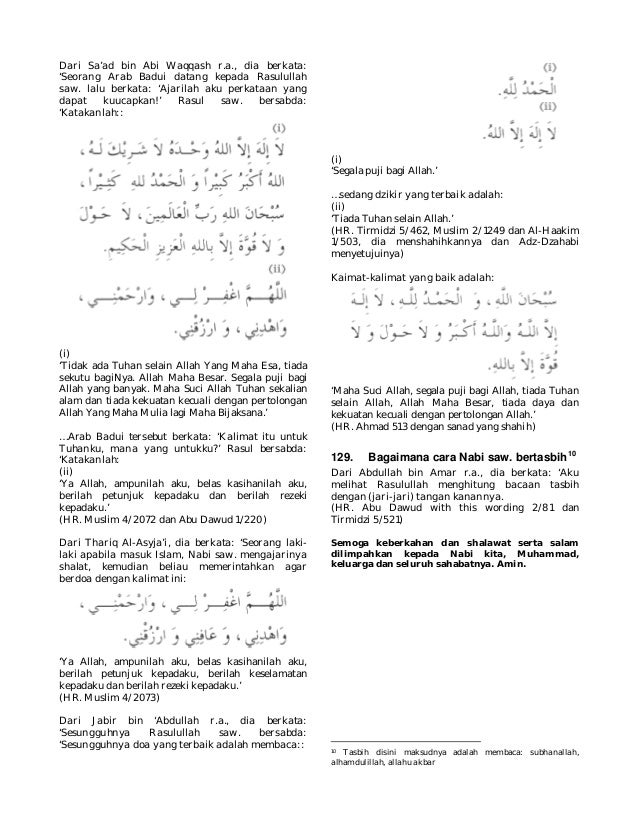 Dari Sa'ad bin Abi Waqqash r.a., dia berkata:
'Seorang Arab Badui datang kepada Rasulullah
saw. lalu berkata: 'Ajarilah aku perkataan yang
dapat kuucapkan!' Rasul saw. bersabda:
'Katakanlah::
(i)
لاَ إِلَهَ إِلاَّ اللهُ وَحْـدَهُ لاَ شَـرِيْكَ لَـهُ،
اللهُ أَكْبَرُ كَبِيْرًا وَ الْحَمْدُ للهِ كَثِـيْرًا،
سُبْحَانَ اللهِ رَبِّ الْعَالَمِينَ، لاَ حَـوْلَ
وَ لاَ قُوَّةَ إِلاَّ بِاللهِ الْعَزِيزِ الْحَكِيمِ.
(ii)
اللَّهُـــمَّ اغْفِـــرْ لِـــي، وَارْحَمْنِـــي،
وَاهْدِنِي، وَ ارْزُقْنِي.
(i)
'Tidak ada Tuhan selain Allah Yang Maha Esa, tiada
sekutu bagiNya. Allah Maha Besar. Segala puji bagi
Allah yang banyak. Maha Suci Allah Tuhan sekalian
alam dan tiada kekuatan kecuali dengan pertolongan
Allah Yang Maha Mulia lagi Maha Bijaksana.'
...Arab Badui tersebut berkata: 'Kalimat itu untuk
Tuhanku, mana yang untukku?' Rasul bersabda:
'Katakanlah:
(ii)
'Ya Allah, ampunilah aku, belas kasihanilah aku,
berilah petunjuk kepadaku dan berilah rezeki
kepadaku.'
(HR. Muslim 4/2072 dan Abu Dawud 1/220)
Dari Thariq Al-Asyja'i, dia berkata: 'Seorang laki-
laki apabila masuk Islam, Nabi saw. mengajarinya
shalat, kemudian beliau memerintahkan agar
berdoa dengan kalimat ini:
اللَّهُـــمَّ اغْفِـــرْ لِـــي، وَارْحَمْنِـــي،
وَاهْدِنِي، وَ عَافِنِي وَ ارْزُقْنِي.
'Ya Allah, ampunilah aku, belas kasihanilah aku,
berilah petunjuk kepadaku, berilah keselamatan
kepadaku dan berilah rezeki kepadaku.'
(HR. Muslim 4/2073)
Dari Jabir bin 'Abdullah r.a., dia berkata:
'Sesungguhnya Rasulullah saw. bersabda:
'Sesungguhnya doa yang terbaik adalah membaca::
(i)
الْحَمْدُ لِلَّهِ.
(ii)
لاَ إِلَهَ إِلاَّ اللهُ.
(i)
'Segala puji bagi Allah.'
...sedang dzikir yang terbaik adalah:
(ii)
'Tiada Tuhan selain Allah.'
(HR. Tirmidzi 5/462, Muslim 2/1249 dan Al-Haakim
1/503, dia menshahihkannya dan Adz-Dzahabi
menyetujuinya)
Kaimat-kalimat yang baik adalah:
سُبْحَانَ اللَّهِ، وَ الْحَمْـدُ لِلَّـهِ، لاَ إِلَـهَ
إِلاَّ اللَّـهُ وَاللَّـهُ أَكْبَـرُ وَ لاَ حَـوْلَ وَ لاَ
قُوَّةَ إِلاَّ بِاللهِ.
'Maha Suci Allah, segala puji bagi Allah, tiada Tuhan
selain Allah, Allah Maha Besar, tiada daya dan
kekuatan kecuali dengan pertolongan Allah.'
(HR. Ahmad 513 dengan sanad yang shahih)
129. Bagaimana cara Nabi saw. bertasbih10
Dari Abdullah bin Amar r.a., dia berkata: 'Aku
melihat Rasulullah menghitung bacaan tasbih
dengan (jari-jari) tangan kanannya.
(HR. Abu Dawud with this wording 2/81 dan
Tirmidzi 5/521)
Semoga keberkahan dan shalawat serta salam
dilimpahkan kepada Nabi kita, Muhammad,
keluarga dan seluruh sahabatnya. Amin.
10 Tasbih disini maksudnya adalah membaca: subhanallah,
alhamdulillah, allahu akbar